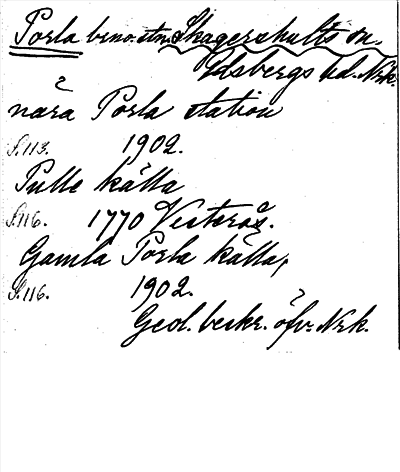 Porla brno. stn. Skagershults sn.
Edsbergs hd. Nrk.
nära Porla station
S.113. 1902.
Pulle källa
S.116. 1770 Vesterås.
Gamla Porla källa,
S.116. 1902.
Geol. beskr. öfv. Nrk.